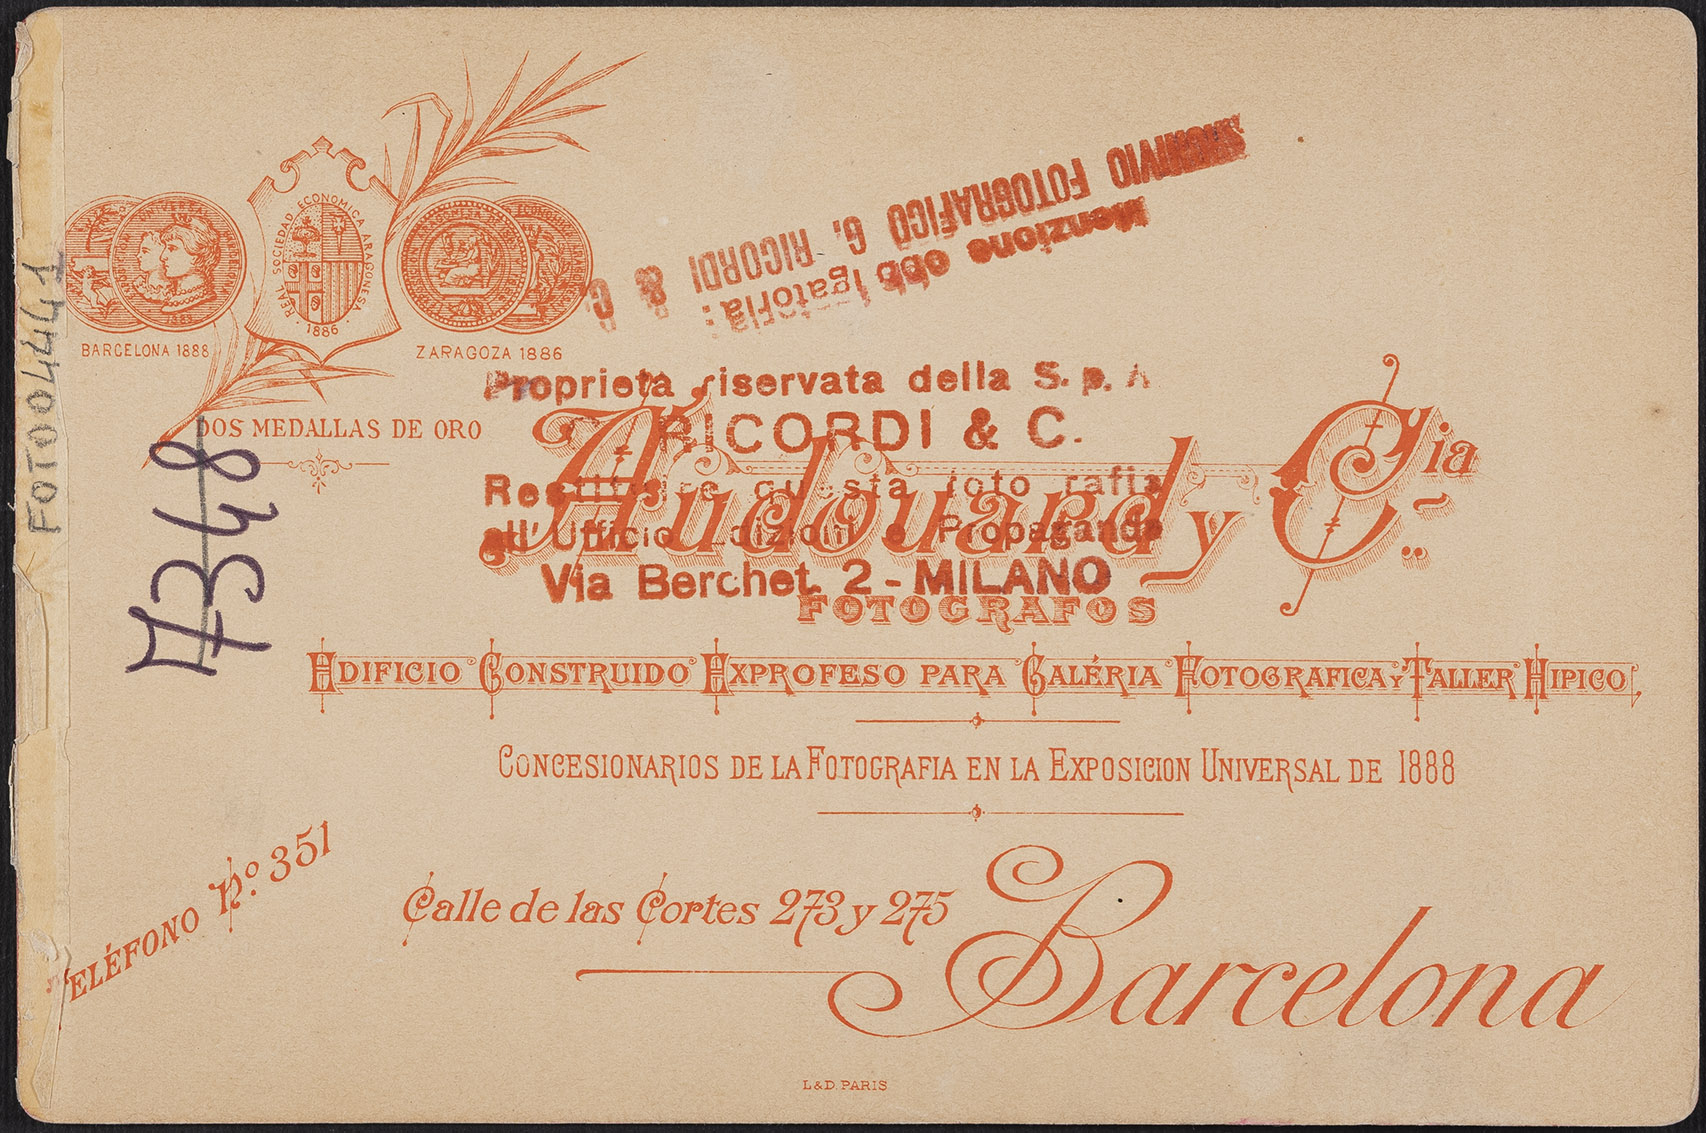 FOTO04441
7348
REAL SOCIEDAD ECONOMICA ARAGONESA
· 1886 ·
BARCELONA 1888
ZARAGOZA 1886
DOS MEDALLAS DE ORO
Menzione obbligatoria:
ARCHIVIO FOTOGRAFICO G. RICORDI & C.
Proprietà riservata della S. p. A
RICORDI & C.
Restituire questa fotografia
all'Ufficio Edizioni e Propaganda
Via Berchet, 2 - MILANO
Audouard y Cia
FOTOGRAFOS
EDIFICIO CONSTRUIDO EXPROFESO PARA GALÉRIA FOTOGRAFICA Y TALLER HIPICO
CONCESIONARIOS DE LA FOTOGRAFIA EN LA EXPOSICION UNIVERSAL DE 1888
TELÉFONO No. 351
Calle de las Cortes 273 y 275
Barcelona
L & D. PARIS